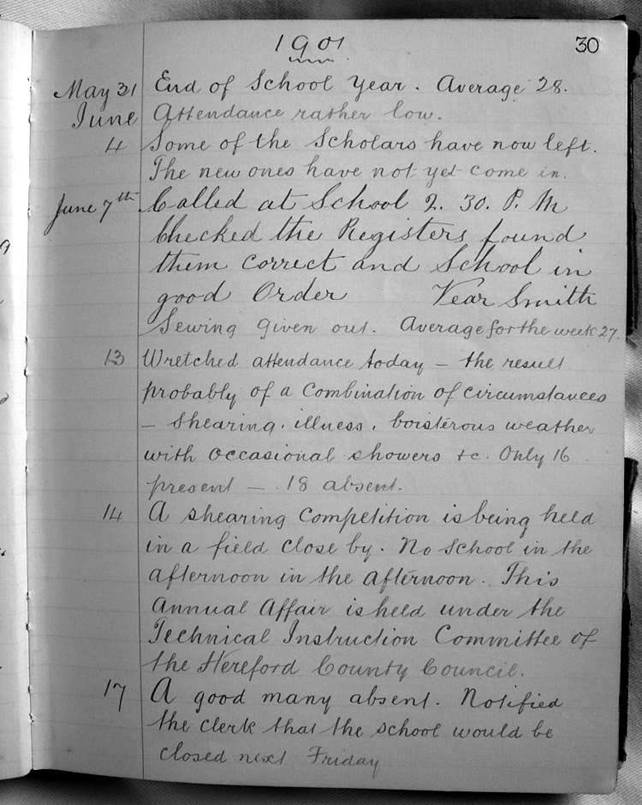 1901
30
May 31 End of School Year. Average 28.
June Attendance rather low.
4 Some of the Scholars have now left.
The new ones have not yet come in.
June 7th Called at School 2. 30. P. M
Checked the Registers found
them correct and School in
good Order Vear Smith
Sewing given out. Average for the week 27.
13 Wretched attendance today – the result
probably of a Combination of circumstances
– Shearing, illness, boisterous weather
with occasional showers &c. Only 16
present – 18 absent.
14 A shearing Competition is being held
in a field close by. No School in the
afternoon in the afternoon. This
Annual Affair is held under the
Technical Instruction Committee of
the Hereford County Council.
17 A good many absent. Notified
the clerk that the school would be
closed next Friday